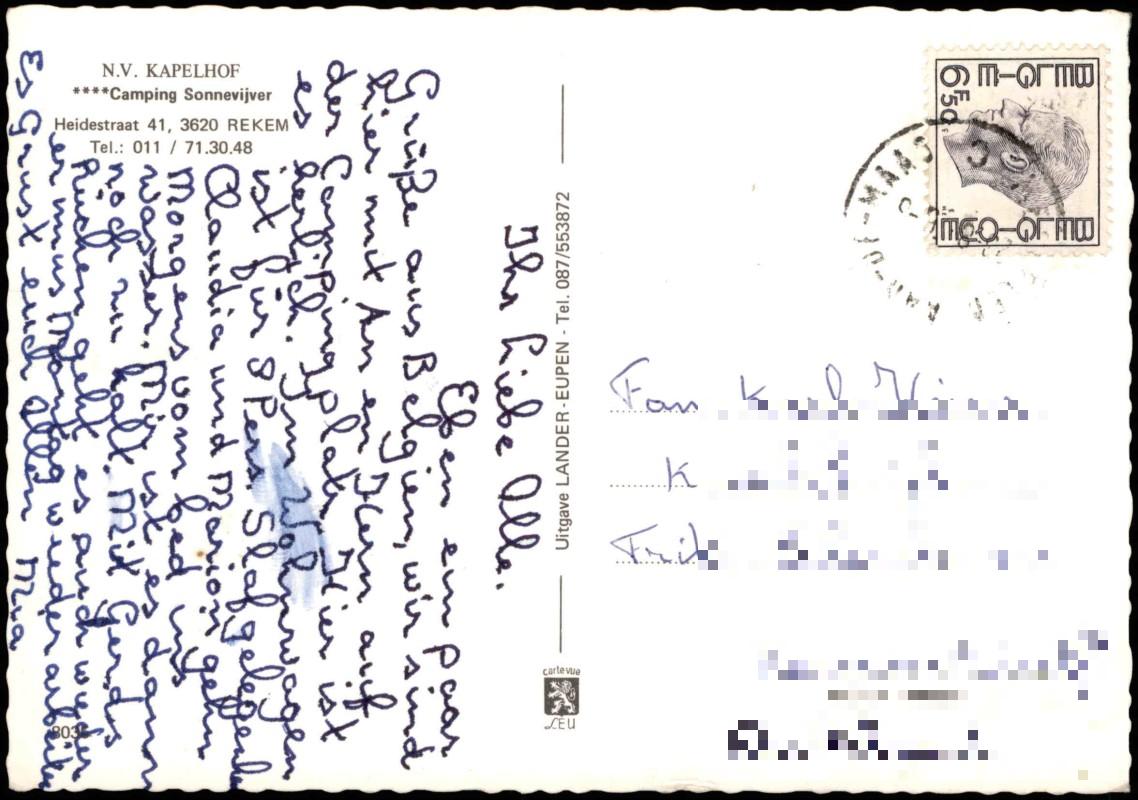 N.V. KAPELHOF
****Camping Sonnevijver
Heidestraat 41, 3620 REKEM
Tel.: 011 / 71.30.48
Ihr liebe Alle.
Eben ein paar
Grüße aus Belgien, wir sind
hier mit An en Jean auf
der Campingplatz. Hier ist
es herlich. Im Wohnwagen
ist für 8 Pers. Slafgelegenh
Claudia und Marion gehn
Morgens vom bed ins
wasser. Mir ist es dann
noch zu kalt. Mit Gerds
Rücken geht es auch wieder
er mus Montag wieder arbeiten
Es Grust euch allen Mia
8035
Uitgave LANDER-EUPEN - Tel. 087/553872
cartevue
LEU
BELGIE
6F50
BELGIQUE
AAN-DE-MAAS
Fam
K